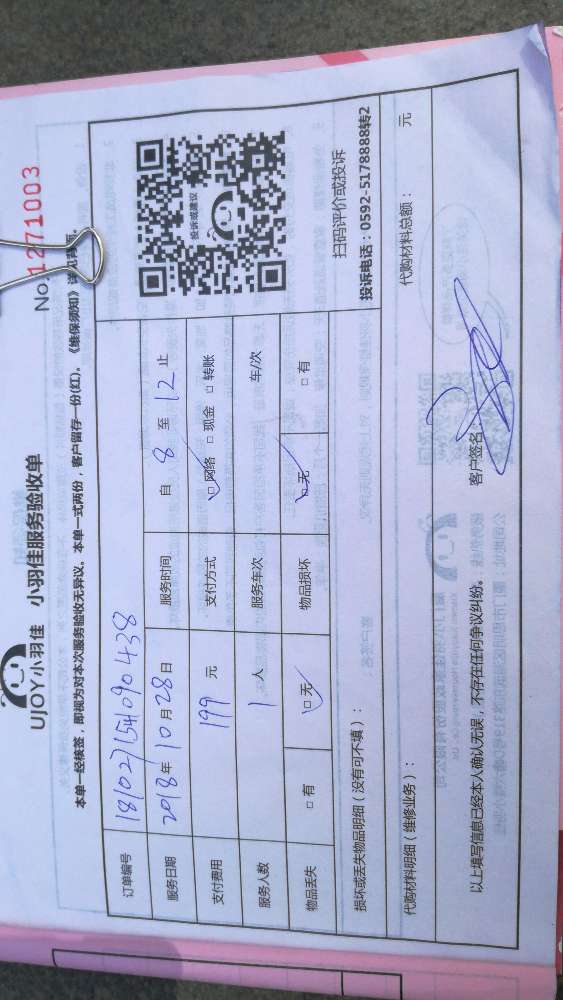 No.1271003
UJOY小羽佳 小羽佳服务验收单
本单一经核签，即视为对本次服务验收无异议。本单一式两份，客户留存一份(红)。《维保须知》详见背面。
订单编号 181027154090438
服务日期 2018年10月28日 服务时间 自 8 至 12 止
支付费用 199 元 支付方式 □网络 □现金 □转账
服务人数 1 人 服务车次 车/次
物品丢失 □有 □无 物品损坏 □无 □有
投诉或建议
扫码评价或投诉
投诉电话：0592-5178888转2
损坏或丢失物品明细（没有可不填）：
代购材料明细（维修业务）： 代购材料总额： 元
以上填写信息已经本人确认无误，不存在任何争议纠纷。 客户签名：